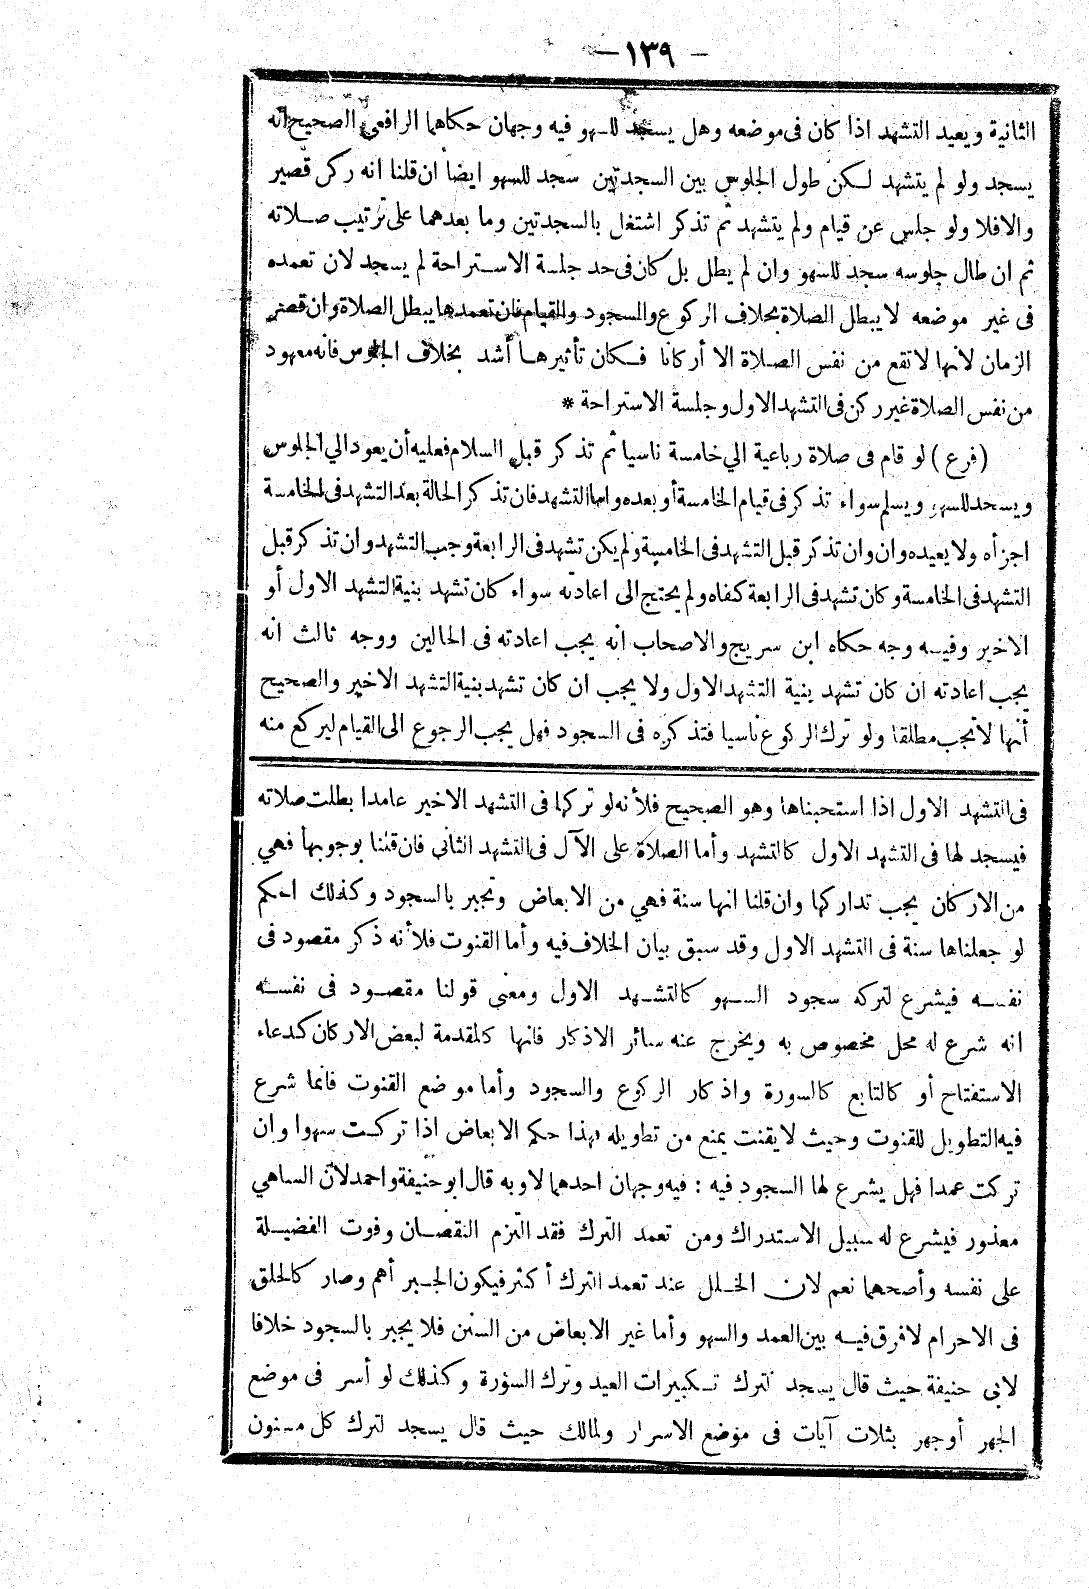 — ١٣٩ —
الثانية ويعيد التشهد اذا كان فى موضعه وهل يسجد للسهو فيه وجهان حكاهما الرافعي الصحيح انه
يسجد ولو لم يتشهد لكن طول الجلوس بين السجدتين سجد للسهو ايضا ان قلنا انه ركن قصير
والافلا ولو جلس عن قيام ولم يتشهد ثم تذكر اشتغل بالسجدتين وما بعدهما على ترتيب صلاته
ثم ان طال جلوسه سجد للسهو وان لم يطل بل كان فى حد جلسة الاستراحة لم يسجد لان تعمده
فى غير موضعه لا يبطل الصلاة بخلاف الركوع والسجود والقيام فان تعمدها يبطل الصلاة وان قصر
الزمان لانها لا تقع من نفس الصلاة الا أركانا فكان تأثيرها أشد بخلاف الجلوس فانه معهود
من نفس الصلاة غير ركن فى التشهد الاول وجلسة الاستراحة *
(فرع) لو قام فى صلاة رباعية الي خامسة ناسيا ثم تذكر قبل السلام فعليه أن يعود الي الجلوس
ويسجد للسهو ويسلم سواء تذكر فى قيام الخامسة أو بعده واما التشهد فان تذكر الحالة بعد التشهد فى الخامسة
اجزأه ولا يعيده وان وان تذكر قبل التشهد فى الخامسة ولم يكن تشهد فى الرابعة وجب التشهد وان تذكر قبل
التشهد فى الخامسة وكان تشهد فى الرابعة كفاه ولم يحتج الى اعادته سواء كان تشهد بنية التشهد الاول أو
الاخير وفيه وجه حكاه ابن سريج والاصحاب انه يجب اعادته فى الحالين ووجه ثالث انه
يجب اعادته ان كان تشهد بنية التشهد الاول ولا يجب ان كان تشهد بنية التشهد الاخير والصحيح
أنها لا تجب مطلقا ولو ترك الركوع ناسيا فتذكره فى السجود فهل يجب الرجوع الى القيام ليركع منه
فى التشهد الاول اذا استحببناها وهو الصحيح فلأنه لو تركها فى التشهد الاخير عامدا بطلت صلاته
فيسجد لها فى التشهد الاول كالتشهد وأما الصلاة على الآل فى التشهد الثاني فان قلنا بوجوبها فهي
من الاركان يجب تداركها وان قلنا انها سنة فهي من الابعاض وتجبر بالسجود وكذلك الحكم
لو جعلناها سنة فى التشهد الاول وقد سبق بيان الخلاف فيه وأما القنوت فلأنه ذكر مقصود فى
نفسه فيشرع لتركه سجود السهو كالتشهد الاول ومعنى قولنا مقصود فى نفسه
انه شرع له محل مخصوص به ويخرج عنه سائر الاذكار فانها كالمقدمة لبعض الاركان كدعاء
الاستفتاح أو كالتابع كالسورة واذكار الركوع والسجود وأما موضع القنوت فانما شرع
فيه التطويل للقنوت وحيث لا يقنت يمنع من تطويله فهذا حكم الابعاض اذا تركت سهوا وان
تركت عمدا فهل يشرع لها السجود فيه : فيه وجهان احدهما لا وبه قال ابو حنيفة واحمد لان الساهي
معذور فيشرع له سبيل الاستدراك ومن تعمد الترك فقد التزم النقصان وفوت الفضيلة
على نفسه وأصحهما نعم لان الخلل عند تعمد الترك أكثر فيكون الجبر أهم وصار كالحلق
فى الاحرام لا فرق فيه بين العمد والسهو وأما غير الابعاض من السنن فلا يجبر بالسجود خلافا
لابى حنيفة حيث قال يسجد لترك تكبيرات العيد وترك السورة وكذلك لو أسر فى موضع
الجهر أو جهر بثلاث آيات فى موضع الاسرار ولمالك حيث قال يسجد لترك كل مسنون